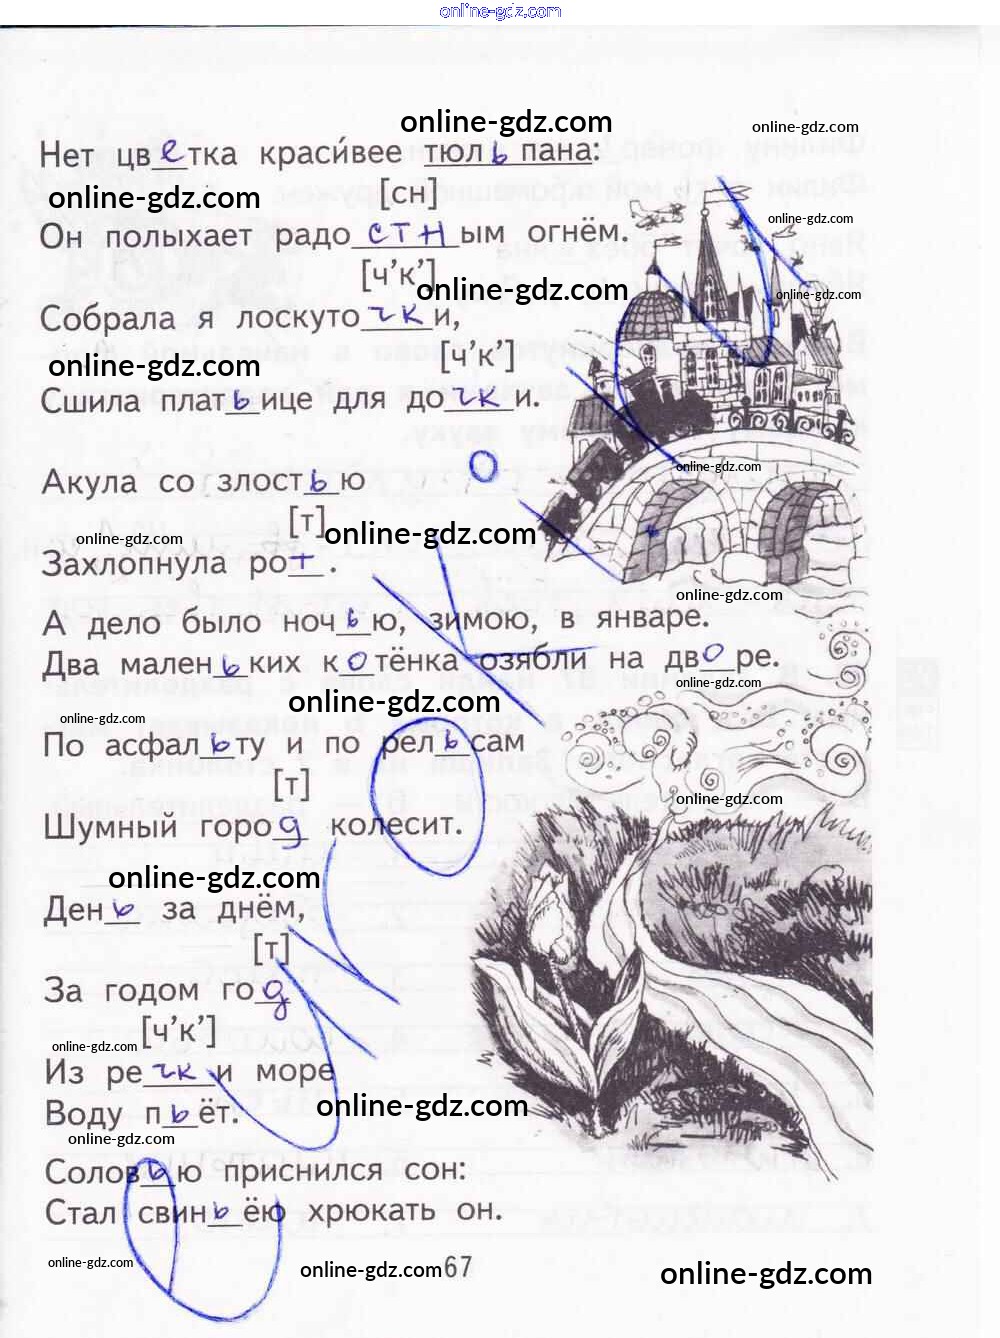 online-gdz.com
online-gdz.com
online-gdz.com
Нет цветка краси́вее тюльпана:
online-gdz.com
[сн]
online-gdz.com
Он полыхает радостным огнём.
[ч’к’]
online-gdz.com
online-gdz.com
Собрала я лоскуточки,
online-gdz.com
[ч’к’]
Сшила платьице для дочки.
online-gdz.com
Акула со злостью
[т]
online-gdz.com
online-gdz.com
Захлопнула рот.
online-gdz.com
А дело было ночью, зимою, в январе.
Два маленьких котёнка озябли на дворе.
online-gdz.com
online-gdz.com
online-gdz.com
По асфальту и по рельсам
[т]
online-gdz.com
Шумный город колесит.
online-gdz.com
День за днём,
[т]
За годом год
[ч’к’]
online-gdz.com
Из речки море
online-gdz.com
Воду пьёт.
online-gdz.com
Соловью приснился сон:
Стал свиньёю хрюкать он.
online-gdz.com
online-gdz.com
67
online-gdz.com